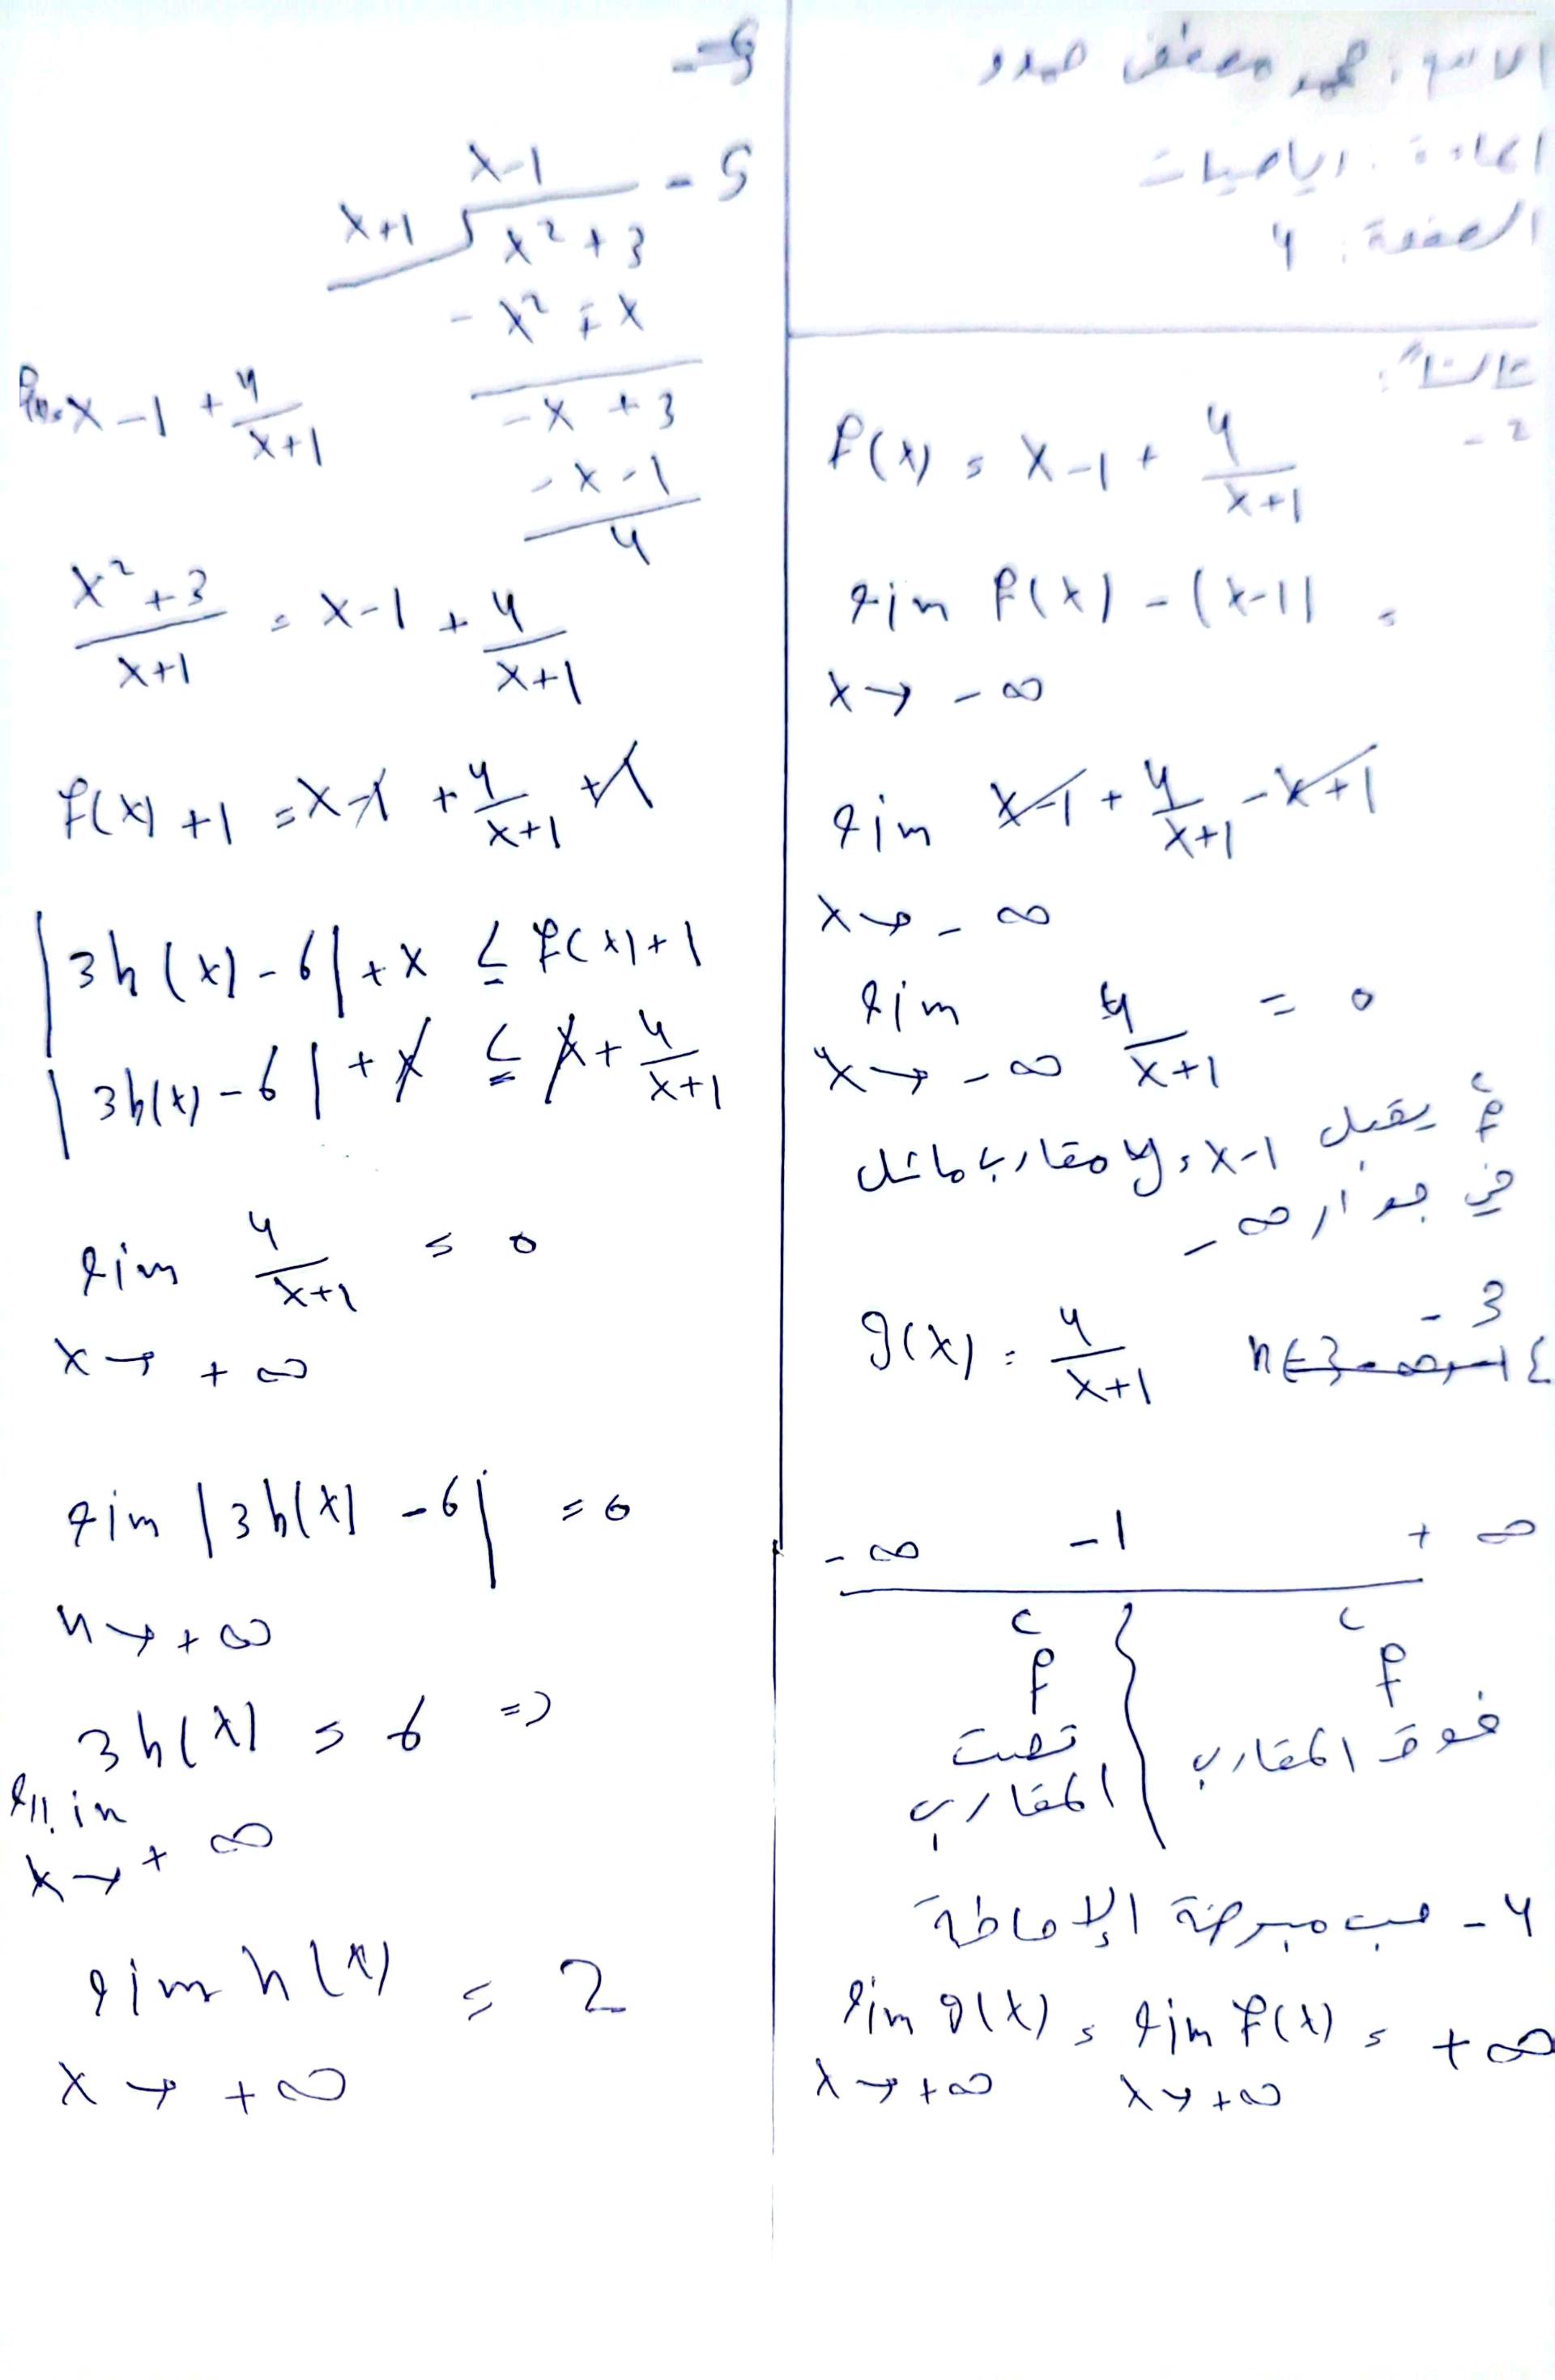 الاسم: محمد مصطفى حمدو
المادة: رياضيات
الصفحة: 4
ثالثاً:
2 -
f(x) = x-1 + 4/(x+1)
lim f(x) - (x-1) =
x→ -∞
lim x-1 + 4/(x+1) - x+1
x→ -∞
lim 4/(x+1) = 0
x→ -∞
C f يقبل y = x-1 مقارب مائل
في جوار -∞
3 -
g(x) = 4/(x+1)
-∞ -1 +∞
C f فوق المقارب
C f تحت المقارب
4 - حسب مبرهنة الإحاطة
lim g(x) = lim f(x) = +∞
x→+∞ x→+∞
5 -
x-1
x+1 x² + 3
- x² ∓ x
-x + 3
-x - 1
4
x-1 + 4/(x+1)
(x²+3)/(x+1) = x-1 + 4/(x+1)
f(x) + 1 = x-1 + 4/(x+1) +1
|3h(x) - 6| + x ≤ f(x) + 1
|3h(x) - 6| + x ≤ x + 4/(x+1)
lim 4/(x+1) = 0
x→ +∞
lim |3h(x) - 6| = 0
x→ +∞
3h(x) = 6 =>
lim
x→ +∞
lim h(x) = 2
x→ +∞